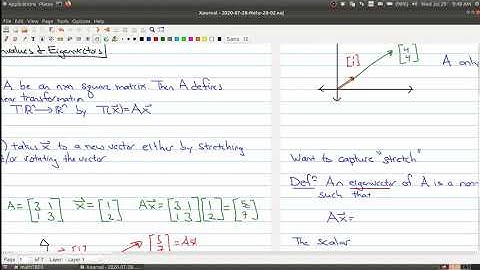 Applications Places
Xournal - 2020-07-28-Note-28-02.xoj
Wed Jul 29 9:48 AM
File Edit View Journal Tools Options Help
nvalues & Eigenvectors
A be an nxn square matrix. Then A defines
near transformation
T: ℝⁿ → ℝⁿ by T(x⃗) = Ax⃗
) takes x⃗ to a new vector either by stretching
/or rotating the vector
A = [3 1; 1 3] x⃗ = [1; 2] Ax⃗ = [3 1; 1 3][1; 2] = [5; 7]
[5; 7] = Ax⃗
[1; 1] [4; 4]
A only
Want to capture "stretch"
Defⁿ: An eigenvector of A is a non
such that
Ax⃗ =
The scalar
Page 1 of 7 Layer: Layer 1
math1B03 Xournal - 2020-07-28-